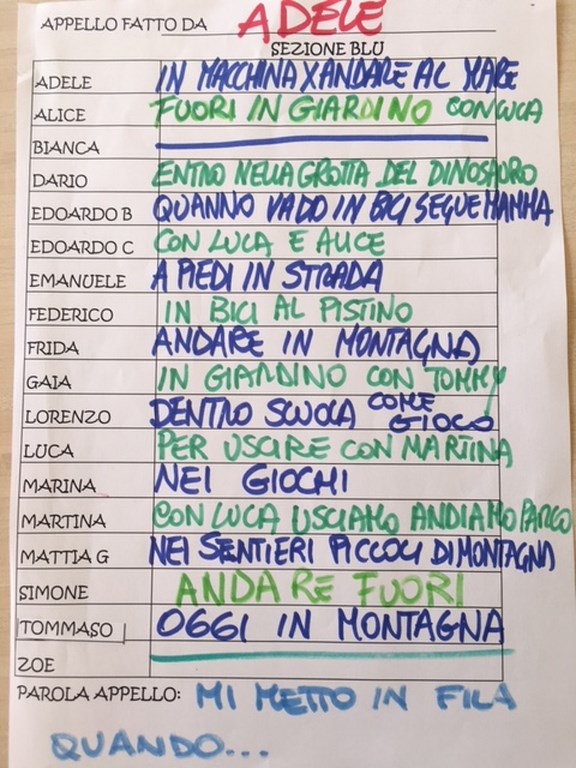 APPELLO FATTO DA ADELE
SEZIONE BLU
ADELE IN MACCHINA X ANDARE AL MARE
ALICE FUORI IN GIARDINO CON LUCA
BIANCA
DARIO ENTRO NELLA GROTTA DEL DINOSAURO
EDOARDO B QUANNO VADO IN BICI SEGUE MAMMA
EDOARDO C CON LUCA E ALICE
EMANUELE A PIEDI IN STRADA
FEDERICO IN BICI AL PISTINO
FRIDA ANDARE IN MONTAGNA
GAIA IN GIARDINO CON TOMMY
LORENZO DENTRO SCUOLA COME GIOCO
LUCA PER USCIRE CON MARTINA
MARINA NEI GIOCHI
MARTINA CON LUCA USCIAMO ANDIAMO PARCO
MATTIA G NEI SENTIERI PICCOLI DI MONTAGNA
SIMONE ANDARE FUORI
TOMMASO OGGI IN MONTAGNA
ZOE
PAROLA APPELLO: MI METTO IN FILA
QUANDO...